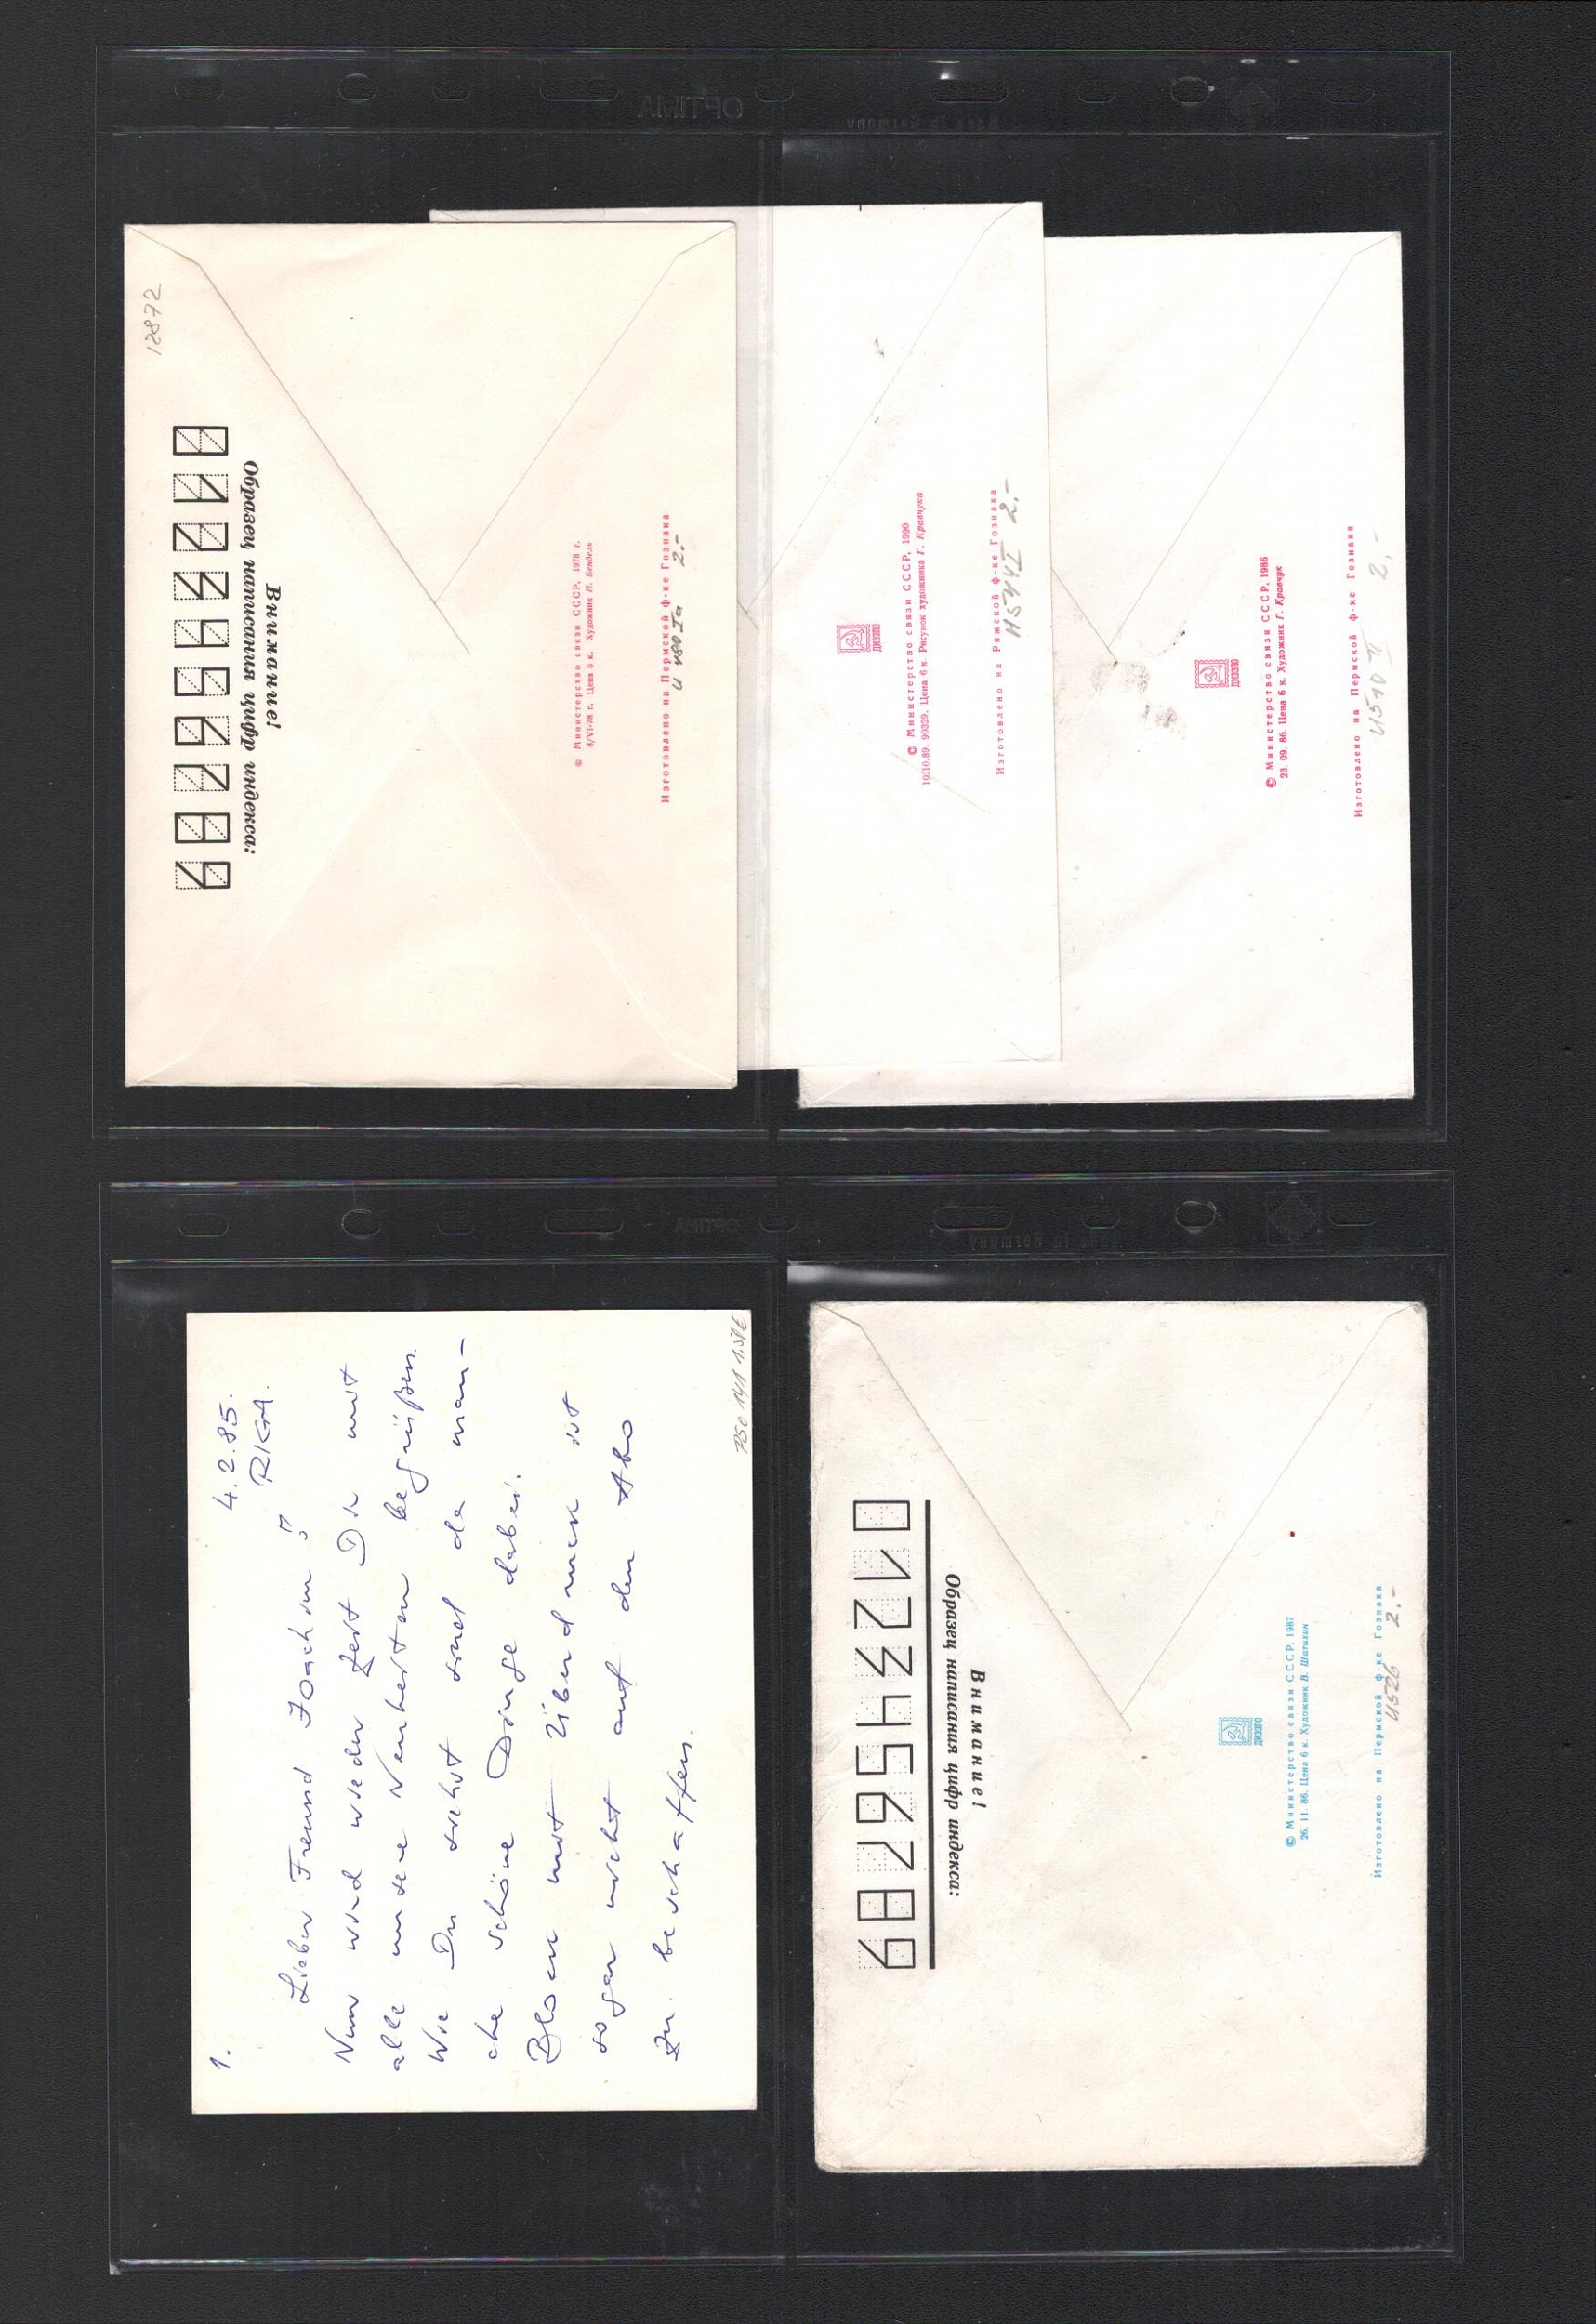 OPTIMA
Made in Germany
12872
Внимание!
Образец написания цифр индекса:
0 1 2 3 4 5 6 7 8 9
© Министерство связи СССР, 1978 г.
8/VI-78 г. Цена 5 к. Художник П. Бендель
Изготовлено на Пермской ф-ке Гознака
U 480 Ia 2.-
ДИЭЗПО
© Министерство связи СССР, 1990
10.10.89. 90329. Цена 6 к. Рисунок художника Г. Кравчука
Изготовлено на Ряжской ф-ке Гознака
2.-
ДИЭЗПО
© Министерство связи СССР, 1986
23. 09. 86. Цена 6 к. Художник Г. Кравчук
Изготовлено на Пермской ф-ке Гознака
U510 II 2.-
OPTIMA
Made in Germany
1. 4.2.85.
RIGA.
Lieber Freund Joachim!
Nun wird wieder Zeit Dich mit
alle unsere Neuheiten begrüßen.
Wie Du siehst sind da man-
che schöne Dinge dabei.
Block mit ist
sogar nicht auf den Abo
zu beschaffen.
Внимание!
Образец написания цифр индекса:
0 1 2 3 4 5 6 7 8 9
ДИЭЗПО
© Министерство связи СССР, 1987
26. 11. 86. Цена 6 к. Художник В. Шатихин
Изготовлено на Пермской ф-ке Гознака
U526 2.-